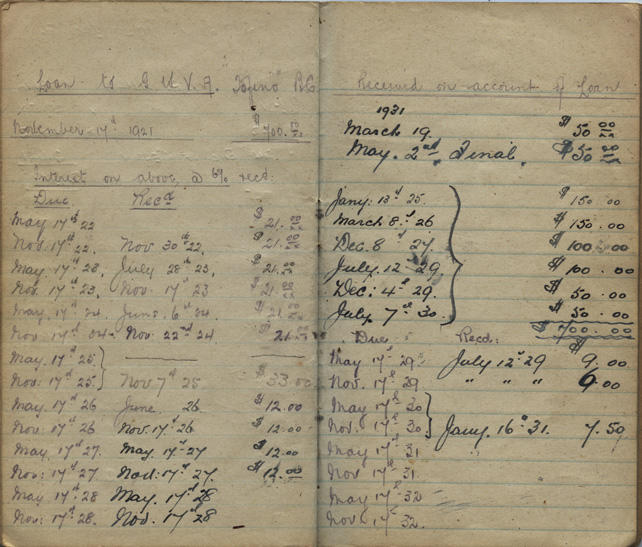 Loan to G.W.V.A. Tofino B.C.
November 17th 1921 $700.00
Interest on above @ 6% recd:
Due Recd
May 17th 22 $21.00
Nov. 17th 22. Nov 30th 22. $21.00
May. 17th 23, July 28th 23, $21.00
Nov. 17th 23, Nov. 17th 23 $21.00
May. 17th 24. June. 6th 24. $21.00
Nov 17th 24 - Nov. 22nd 24 $21.00
May 17th 25
Nov. 17th 25 Nov 7th 25 $33.00
May. 17th 26 June 26 $12.00
Nov. 17th 26 Nov. 17th 26 $12.00
May. 17th 27. May. 17th 27 $12.00
Nov: 17th 27 Nov: 17th 27. $12.00
May 17th 28 May. 17th 28
Nov: 17th 28. Nov. 17th 28
Received on account of Loan
1931
March 19. $50.00
May. 2nd. Final. $50.00
Jany: 13th 25. $150.00
March 8th. 26 $150.00
Dec. 8th 27. $100.00
July. 12th 29. $100.00
Dec: 4th 29. $50.00
July. 7th 30. $50.00
$700.00
Due Recd:
May 17th 29 July 12th 29 $9.00
Nov. 17th 29 " " " 9.00
May 17th 30
Nov: 17th 30 Jany. 16th 31. 7.50
May 17th 31
Nov 17th 31
May 17th 32
Nov 17th 32.